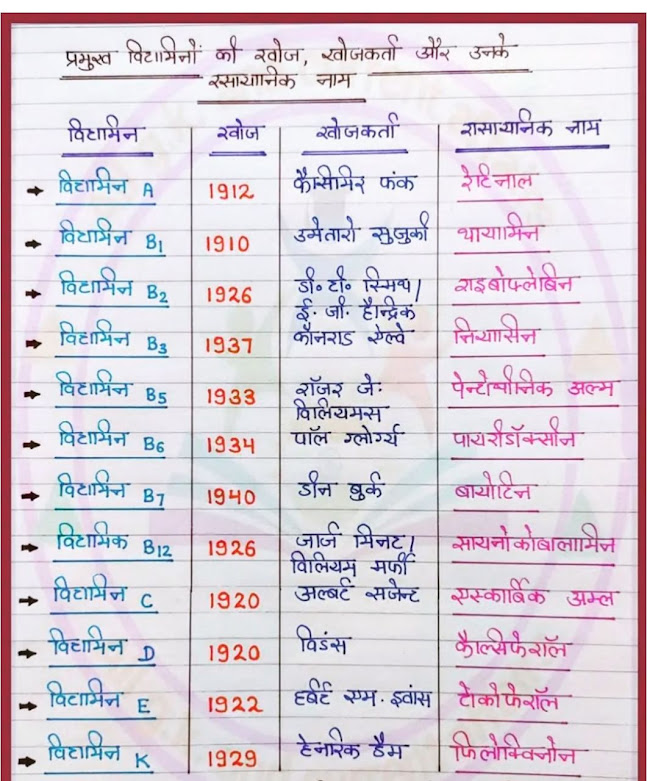 प्रमुख विटामिनों की खोज, खोजकर्ता और उनके
रसायानिक नाम
विटामिन खोज खोजकर्ता रासायानिक नाम
→ विटामिन A 1912 कैसिमिर फंक रेटिनाल
→ विटामिन B₁ 1910 उमेतारो सुजुकी थायामिन
→ विटामिन B₂ 1926 डी॰ टी॰ स्मिथ/ राइबोफ्लेबिन
ई. जी. हैन्द्रिक
→ विटामिन B₃ 1937 कॉनराड ऐल्वे नियासिन
→ विटामिन B₅ 1933 रॉजर जे: पेन्टोथीनिक अल्म
विलियमस
→ विटामिन B₆ 1934 पॉल ग्लोर्ग्य पायरीडॉक्सीन
→ विटामिन B₇ 1940 डीन बुर्क बायोटिन
→ विटामिक B₁₂ 1926 जार्ज मिनट/ सायनोकोबालामिन
विलियम मर्फी
→ विटामिन C 1920 अल्बर्ट सजेन्ट एस्कार्बिक अम्ल
→ विटामिन D 1920 विडंस कैल्सिफेरॉल
→ विटामिन E 1922 हर्बर्ट एम. इवांस टोकोफेरॉल
→ विटामिन K 1929 हेनरिक डैम फिलोक्विनोन